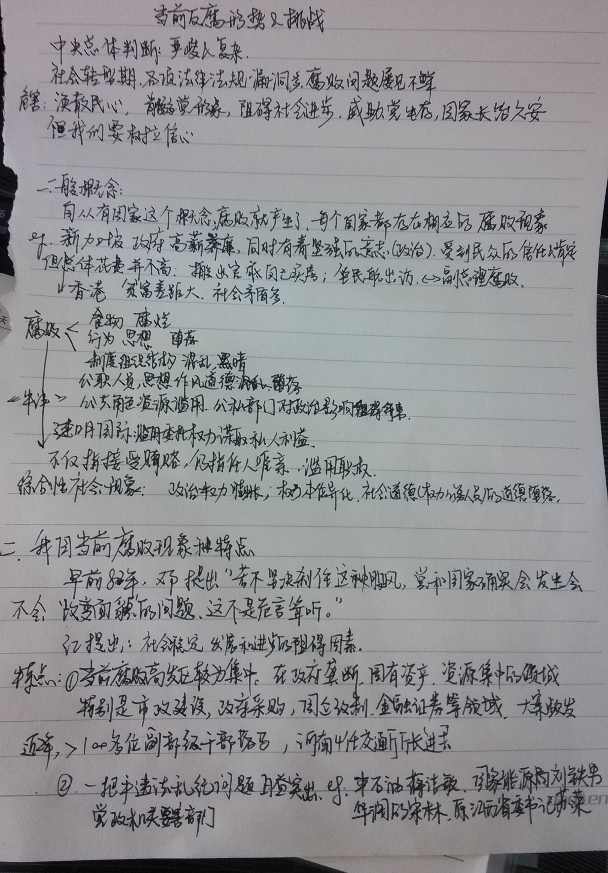 当前反腐的形势与挑战
中央总体判断: 严峻复杂.
社会转型期, 各项法律法规漏洞多, 腐败问题屡见不鲜
危害: 涣散民心, 党形象, 阻碍社会进步, 威胁党生存, 国家长治久安
但我们要树立信心
一、一般概念:
自从有国家这个概念, 腐败就产生了, 每个国家都存在相应的腐败现象
eg. 新加坡 政府高薪养廉, 同时有着坚强的意志(政治). 受到民众的信任、肯定
但总体花费并不高.
香港 贫富差距大. 社会矛盾多.
腐败 食物 腐烂
行为 思想 堕落
制度组织结构 混乱 黑暗
公职人员思想作风道德 堕落
公共角色资源滥用. 公私部门对政治影响
透明国际 滥用委托权力谋取私人利益.
不仅指接受贿赂, 仍指任人唯亲, 滥用职权.
综合性社会现象: 政治权力膨胀, 权力本位异化. 社会道德(权力人员)的道德堕落.
二. 我国当前腐败现象和特点
早前82年, 邓提出“若不坚决刹住这种风, 党和国家确实会发生会
不会‘改变面貌’的问题. 这不是危言耸听。”
江提出: 社会稳定 发展和进步的阻碍因素.
特点: ① 当前腐败高发区较为集中. 在政府垄断 国有资产, 资源集中的领域
特别是市政建设, 政府采购, 国企改制, 金融证券等领域, 大案频发
近年, >100多位副部级干部落马, 河南4任交通厅厅长进去
② 一把手违法乱纪问题日益突出. eg. 中石油蒋洁敏, 国家能源局刘铁男
党政机关要害部门 华润的宋林. 原江西省委书记苏荣